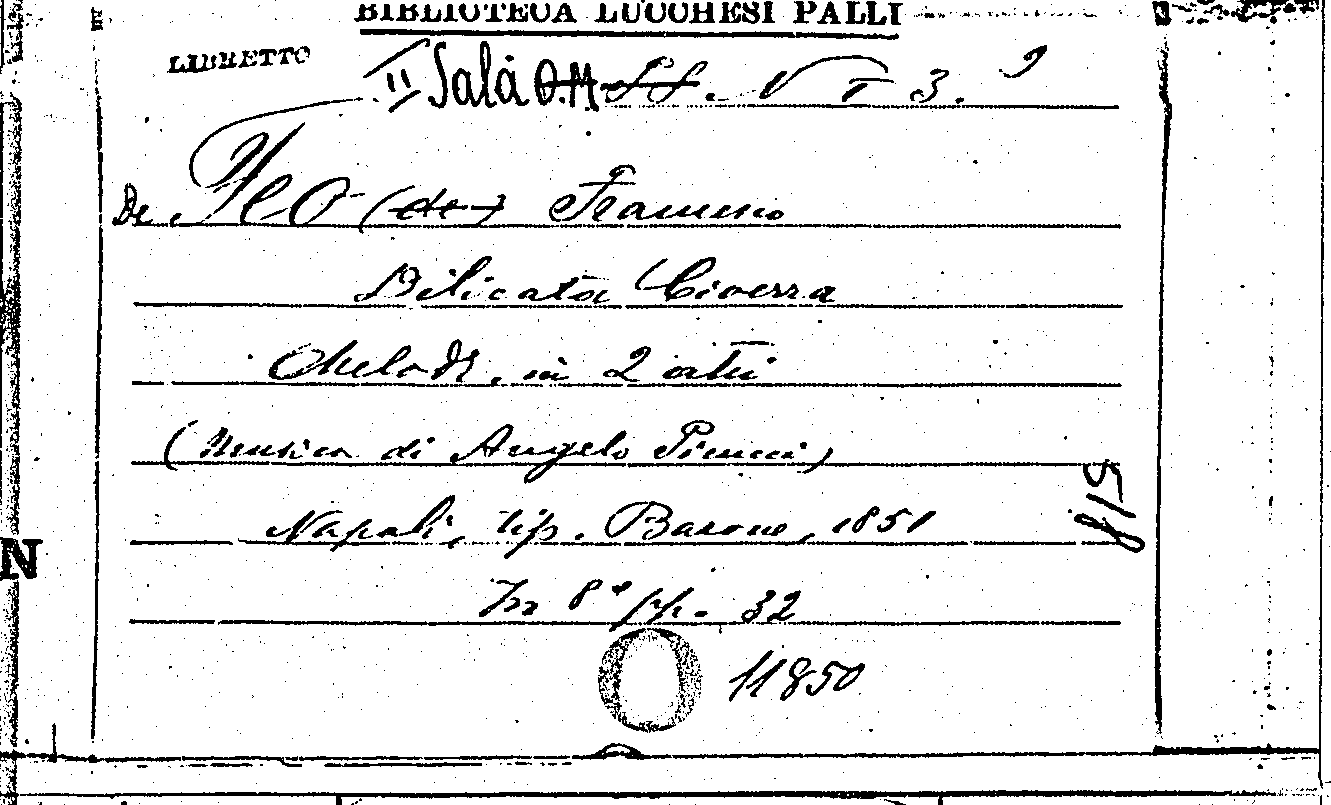 BIBLIOTECA LUCCHESI PALLI
LIBRETTO
II Sala O.M. V I 3. 9
De Feo (de) Francesco
Bilicata Civerra
Melodr. in 2 atti
(Musica di Angelo Picucci)
Napoli, tip. Barone, 1851
In 8° pp. 32
11850
518
N